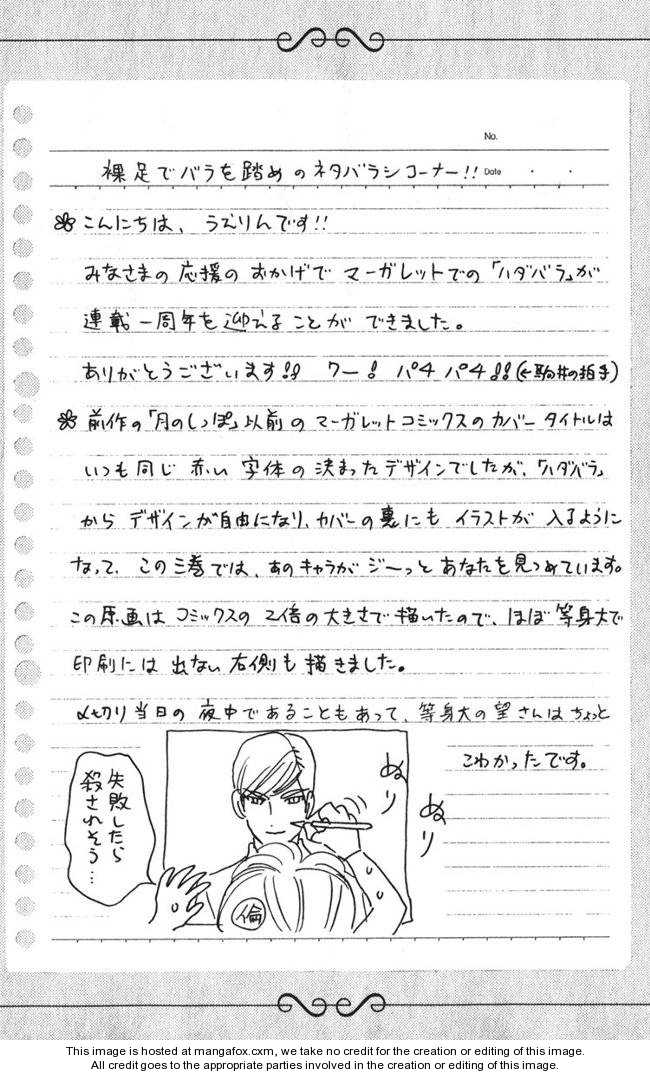 No.
裸足でバラを踏めのネタバラシコーナー!!
Date ・ ・
こんにちは、うえりんです!!
みなさまの応援のおかげでマーガレットでの「ハダバラ」が
連載一周年を迎えることができました。
ありがとうございます!! ワー! パチパチ!!(←駒井の拍手)
前作の「月のしっぽ」以前のマーガレットコミックスのカバータイトルは
いつも同じ赤い字体の決まったデザインでしたが、「ハダバラ」
からデザインが自由になり、カバーの裏にもイラストが入るように
なって、この三巻では、あのキャラがジーっとあなたを見つめています。
この原画はコミックスの2倍の大きさで描いたので、ほぼ等身大で
印刷には出ない右側も描きました。
〆切り当日の夜中であることもあって、等身大の望さんはちょっと
こわかったです。
ぬり
ぬり
失敗したら
殺されそう…
倫
This image is hosted at mangafox.cxm, we take no credit for the creation or editing of this image.
All credit goes to the appropriate parties involved in the creation or editing of this image.